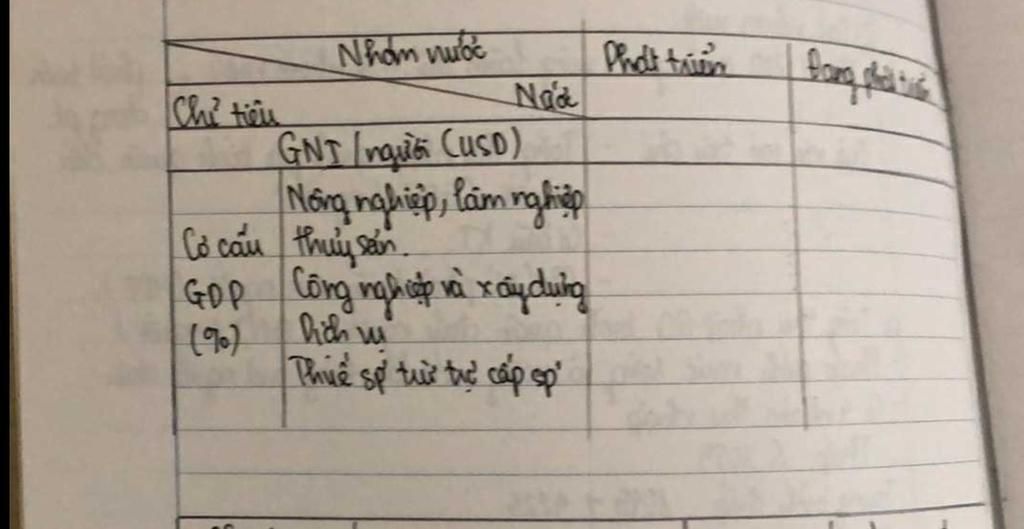 Nhóm nước Phát triển Đang phát triển
Nước
Chỉ tiêu
GNI/người (USD)
Nông nghiệp, lâm nghiệp
Cơ cấu thủy sản.
GDP Công nghiệp và xây dựng
(%) Dịch vụ
Thuế sp trừ trợ cấp sp